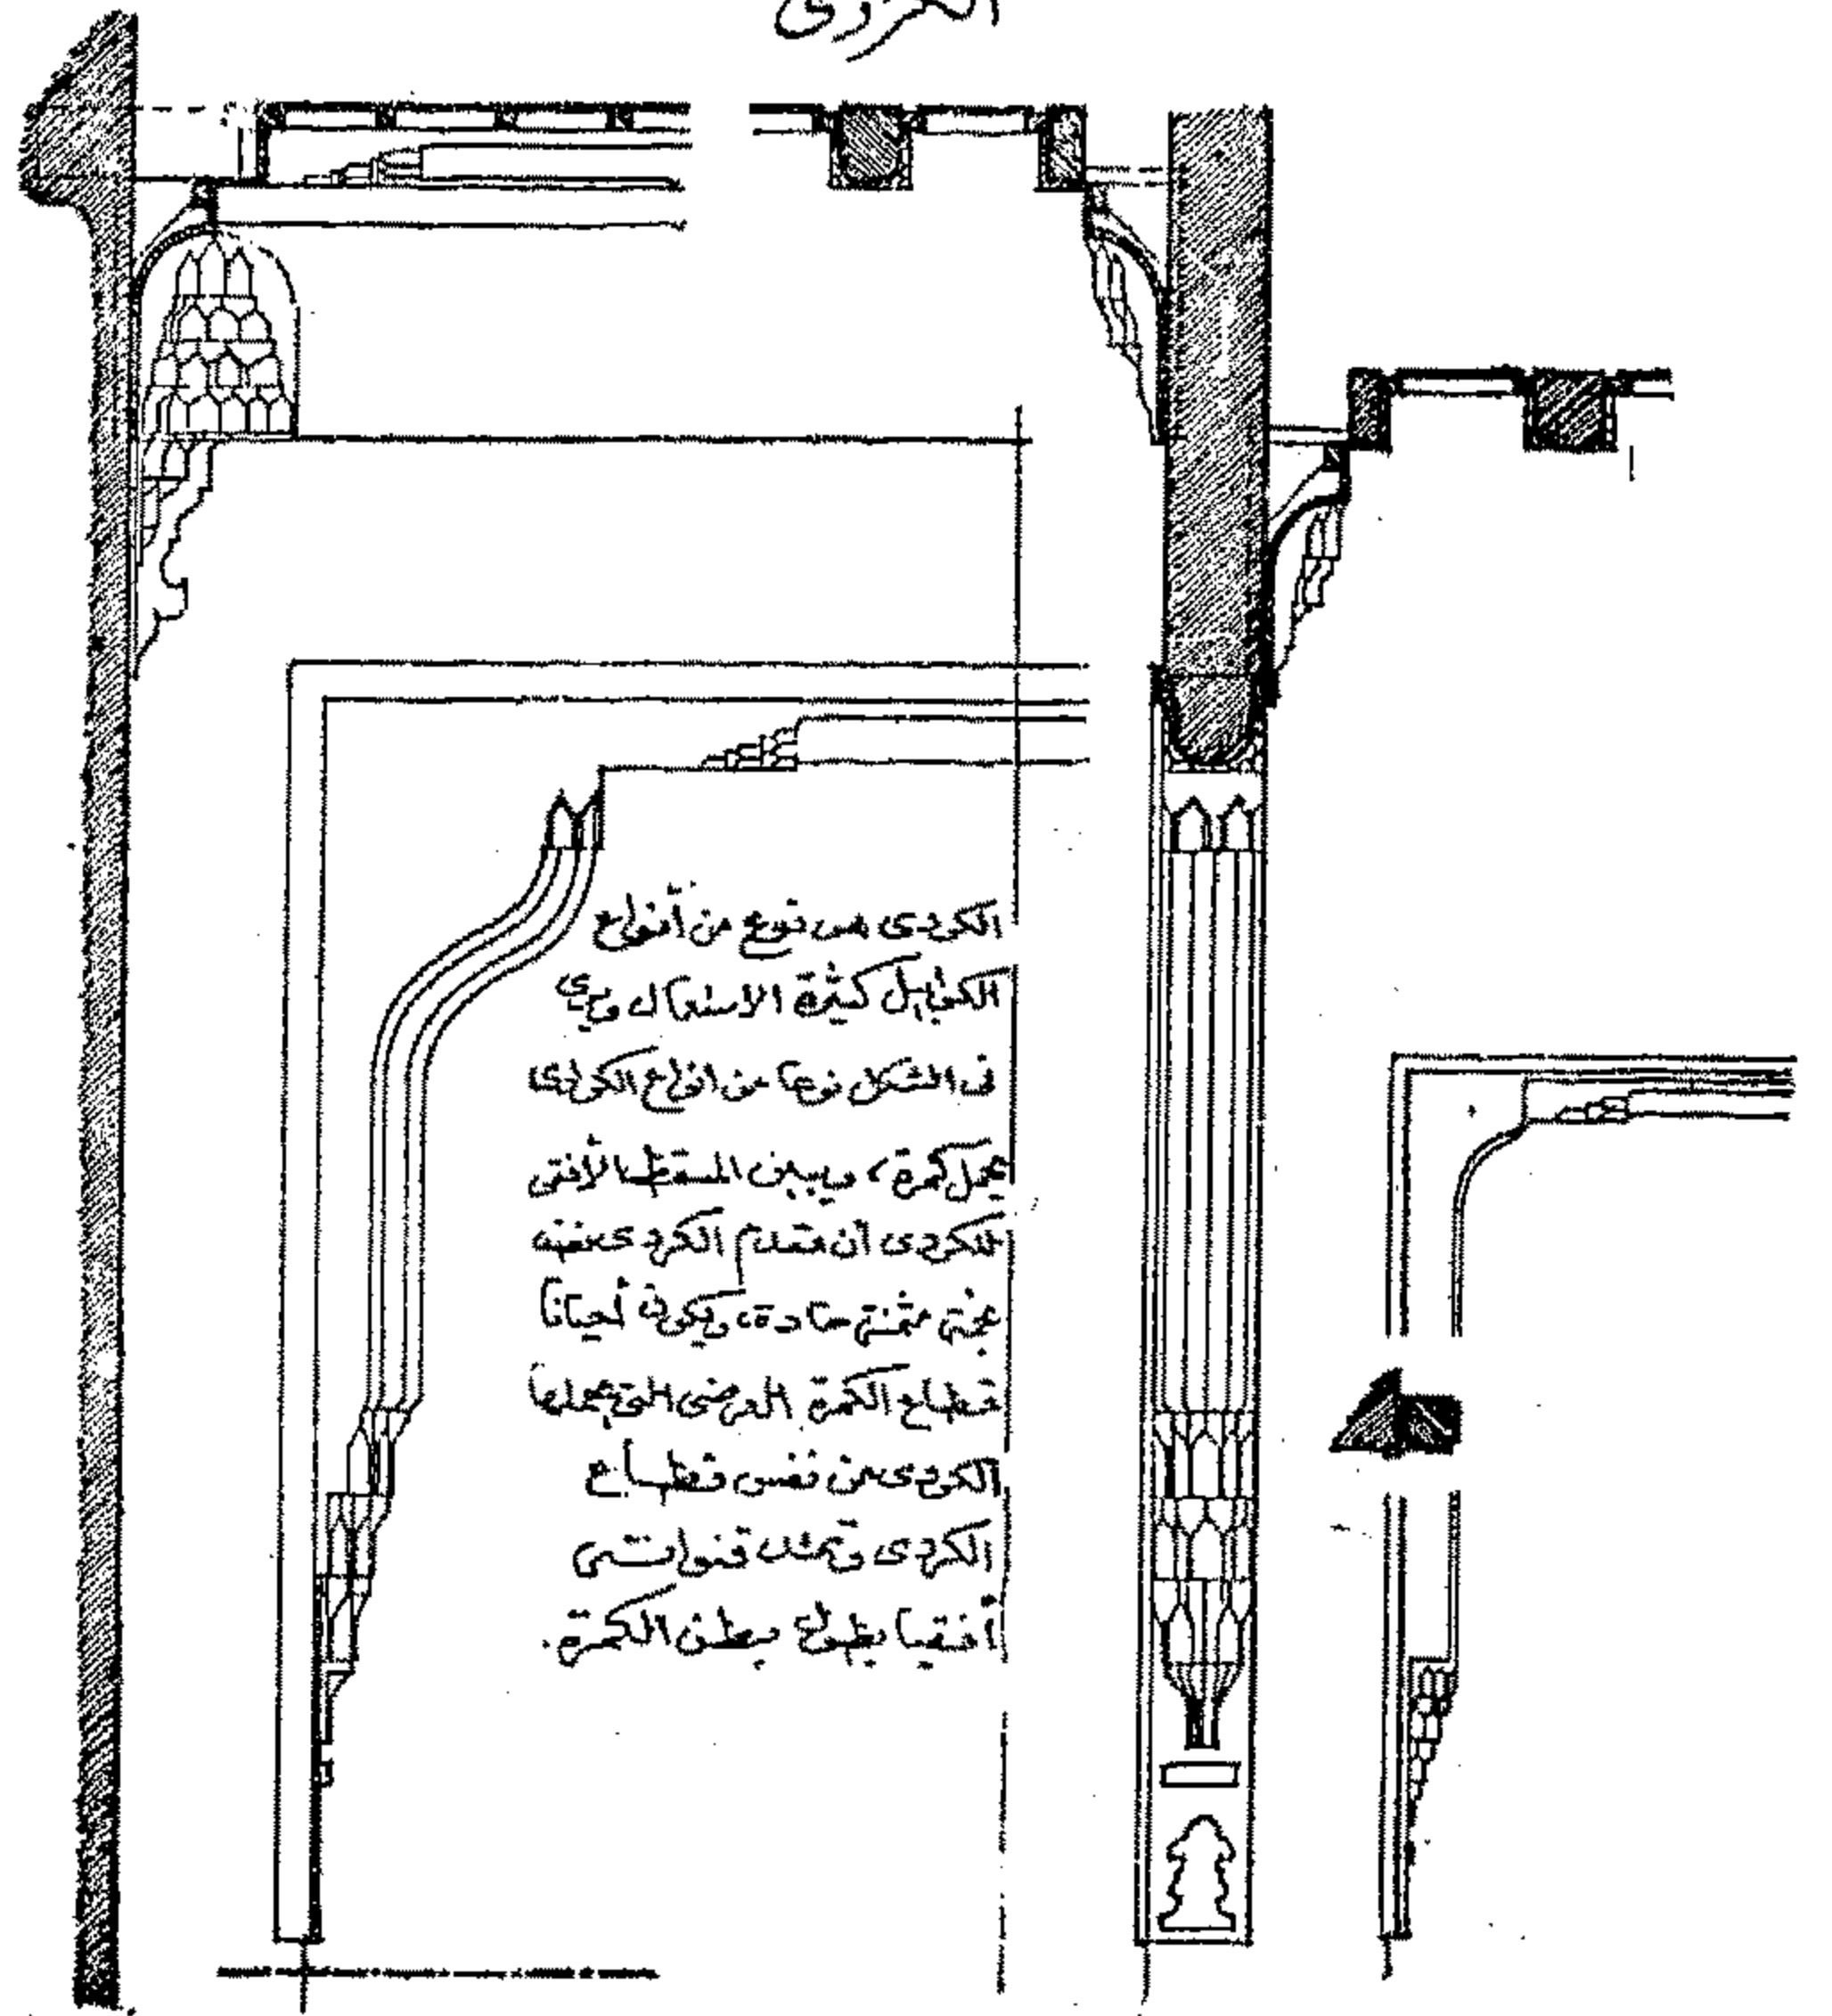 الكردى
الكردى هو نوع من أنواع
الكوابيل كثيرة الاستعمال ويرى
فى الشكل نوعا من انواع الكرادى
يحمل كمرة، ويبين المسقط الأفقى
للكردى أن مقدم الكردى نفسه
مثمنة حادة، ويكون أحيانا
قطاع الكمرة العرضى التى يحملها
الكردى من نفس قطاع
الكردى وتمتد قنواته
أفقيا بطول بطن الكمرة.